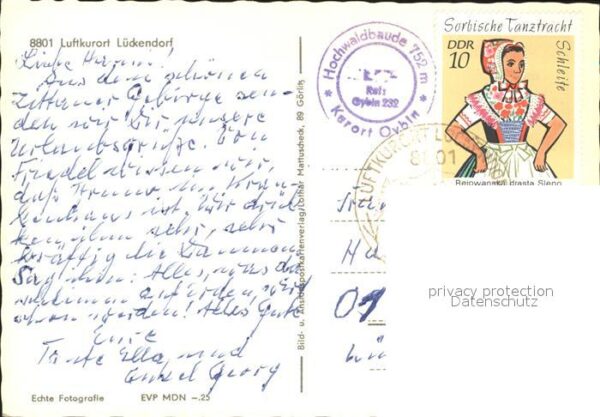 8801 Luftkurort Lückendorf
Liebe
Aus dem schönen
Zittauer Gebirge sen-
den wir Dir unsere
Urlaubsgrüße. Von
Friedel wissen wir,
daß im Kran-
kenhaus ist. Wir drük-
ken ihm sehr, sehr
kräftig die Daumen
Sag ihm: Alles, was
auf Erden,
schon werden! Alles Gute
Eure
Tante Ella und
Onkel Georg
Echte Fotografie EVP MDN —.25
Bild- u. Ansichtspostkartenverlag Lothar Mattuscheck, 89 Görlitz
* Hochwaldbaude 752 m *
Ruf:
Oybin 232
Kurort Oybin
LUFTKURORT
8801
Sorbische Tanztracht
Schleife
DDR
10
drasta Slepo
privacy protection
Datenschutz